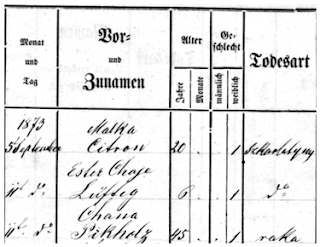 Monat und Tag | Vor- und Zunamen | Alter | Geschlecht | Todesart
Jahre | Monate | männlich | weiblich
1873 Malka
5 September Citron 20 - - 1 Szkarlatyny
Ester Chaje
11t. do Lüftig 6 - - 1 do
Chana
11t. do Pikholz 45 - - 1 raka